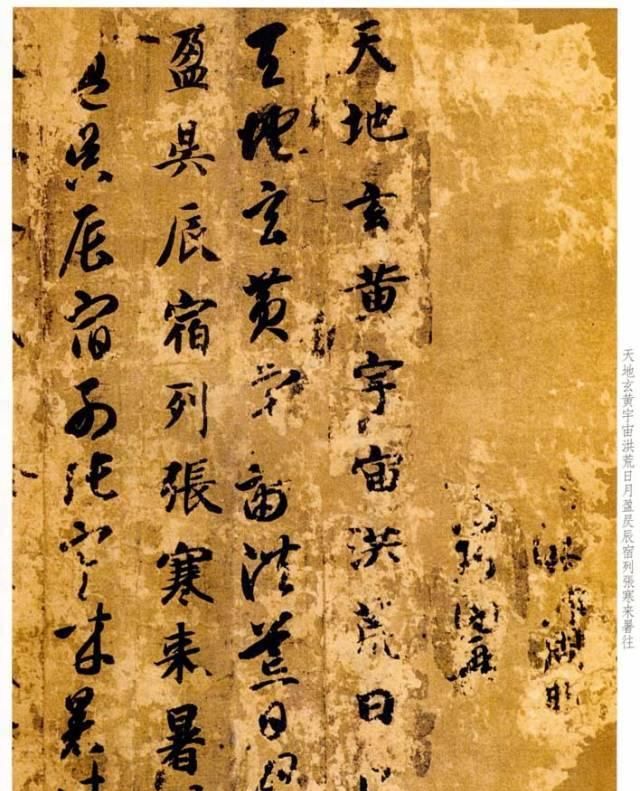 天地玄黄宇宙洪荒日月盈昃辰宿列張寒来暑往
天地玄黄宇宙洪荒日
天地玄黄宇宙洪荒日月
盈昃辰宿列張寒来暑
盈昃辰宿列張寒来暑